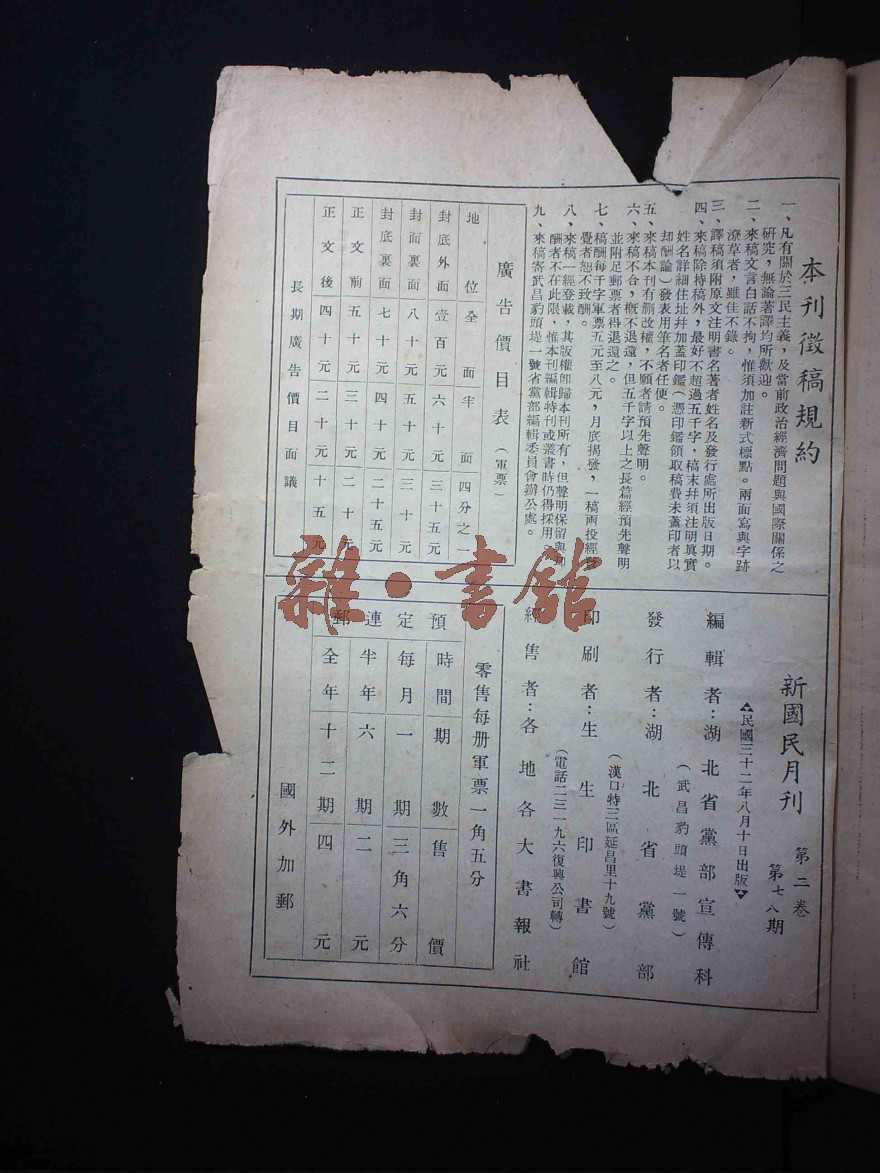 本刊徵稿規約
一、凡有關於三民主義，及當前政治經濟問題與國際關係之
研究，無論著譯均所歡迎。
二、來稿文言白話不拘，惟須加註新式標點。兩面寫與字跡
潦草者，雖佳不錄。
三、譯稿須附原文注明書名著者姓名及發行處所出版日期。
四、來稿除特稿外，最好不超過五千字，稿末幷須注明眞實
姓名詳細住址幷加蓋印鑑（憑印鑑領取稿費未蓋印者以
却酬論）發表用筆名者任便。
五、來稿本刊有删改權，不願者請預先聲明。
六、來稿不合，概不退還，但五千字以上之長篇經預先聲明
並附足郵票者得退還之。
七、稿酬每千字軍票五元至八元，月底揭發，一稿兩投經發
覺者恕不致酬。
八、來稿一經登載，其版權卽歸本刊所有，但聲明保留與却
酬者不在此限，惟本刊編輯特刊或叢書時仍得採用。
九、來稿寄武昌豹頭堤一號省黨部編輯委員會辦公處。
廣告價目表（軍票）
地位 全面 半面 四分之一
封底外面 壹百元 六十元 三十五元
封面裏面 八十元 五十元 三十元
封底裏面 七十元 四十元 二十五元
正文前 五十元 三十元 二十元
正文後 四十元 二十元 十五元
長期廣告價目面議
新國民月刊 第二卷 第七八期
民國三十二年八月十日出版
編輯者：湖北省黨部宣傳科
（武昌豹頭堤一號）
發行者：湖北省黨部
印刷者：生生印書館
（漢口特三區延昌里十九號）
（電話二三一九六復興公司轉）
經售者：各地各大書報社
零售每册軍票一角五分
預定連郵
時間 期數 售價
每月 一期 三角六分
半年 六期 二元
全年 十二期 四元
國外加郵
雜·書館